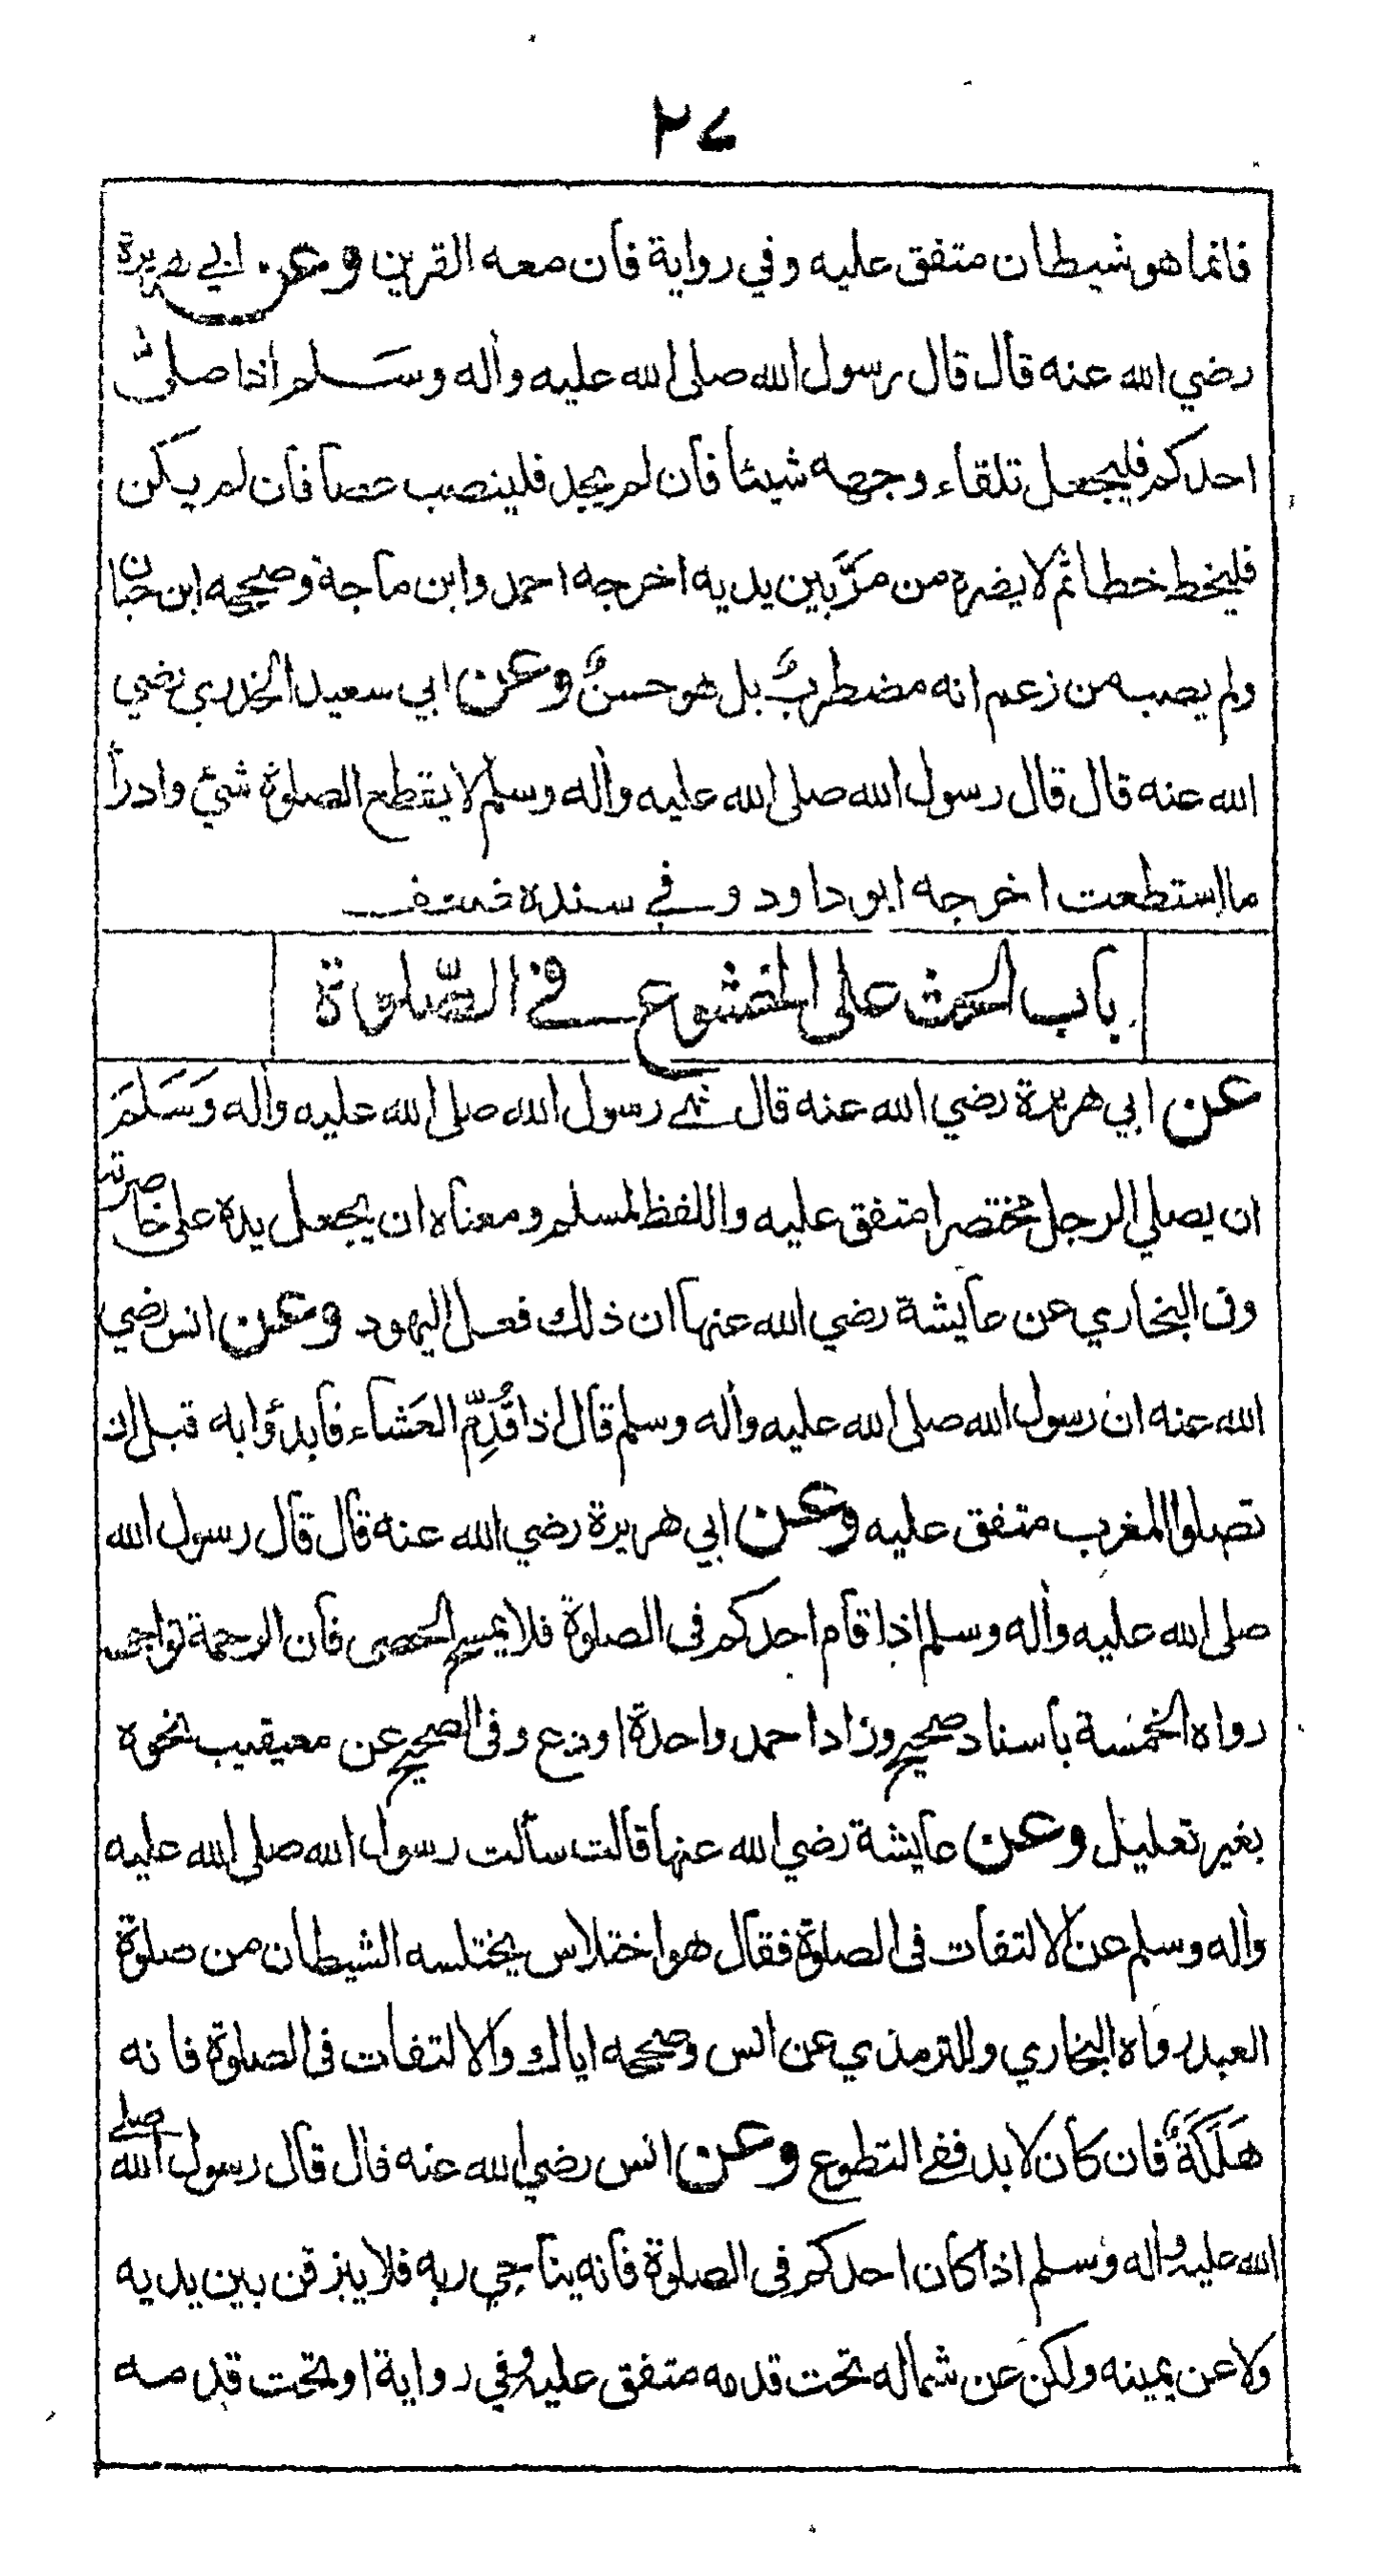 ٢٤
فانما هو شيطان متفق عليه وفي رواية فان معه القرين وعن ابي هريرة
رضي الله عنه قال قال رسول الله صلى الله عليه وأله وسلم اذا صلى
احدكم فليجعل تلقاء وجهه شيئا فان لم يجد فلينصب عصا فان لم يكن
فليخط خطا ثم لا يضره من مرَّ بين يديه اخرجه احمد وابن ماجة وصححه ابن حبان
ولم يصب من زعم انه مضطربٌ بل هو حسنٌ وعن ابي سعيد الخدري رضي
الله عنه قال قال رسول الله صلى الله عليه وأله وسلم لا يقطع الصلوة شيء وادرأ
ما استطعت اخرجه ابو داود وفي سنده ضعف
باب الحث على الخشوع في الصّلوة
عن ابي هريرة رضي الله عنه قال نهى رسول الله صلى الله عليه وأله وَسَلَّمَ
ان يصلي الرجل مختصرا متفق عليه واللفظ لمسلم ومعناه ان يجعل يده على خاصرته
وفى البخاري عن عايشة رضي الله عنها ان ذلك فعل اليهود وعن انس رضي
الله عنه ان رسول الله صلى الله عليه وأله وسلم قال اذا قُدِّمَ العَشاء فابدؤا به قبل ان
تصلوا المغرب متفق عليه وعن ابي هريرة رضي الله عنه قال قال رسول الله
صلى الله عليه وأله وسلم اذا قام احدكم فى الصلوة فلا يمسح الحصى فان الرحمة تواجهه
رواه الخمسة باسناد صحيح وزاد احمد واحدة او دع وفى الصحيح عن معيقيب نحوه
بغير تعليل وعن عايشة رضي الله عنها قالت سألت رسول الله صلى الله عليه
وأله وسلم عن الالتفات فى الصلوة فقال هو اختلاس يختلسه الشيطان من صلوة
العبد رواه البخاري وللترمذي عن انس وصححه اياك والالتفات فى الصلوة فانه
هَلَكَةٌ فان كان لا بد ففي التطوع وعن انس رضي الله عنه قال قال رسول الله صلى
الله عليه وأله وسلم اذا كان احدكم فى الصلوة فانه يناجي ربه فلا يبزقن بين يديه
ولا عن يمينه ولكن عن شماله تحت قدمه متفق عليه وفي رواية او تحت قدمه